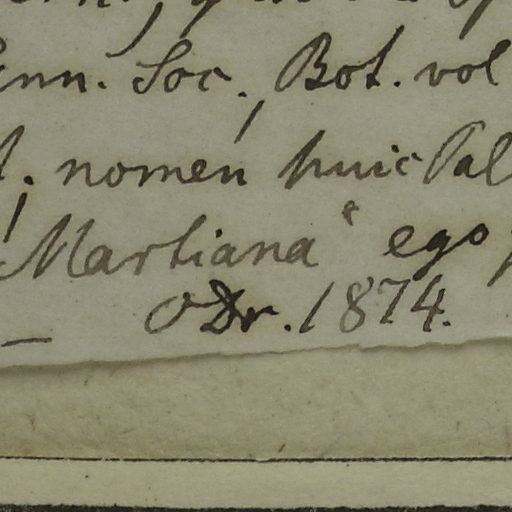 Linn. Soc., Bot. vol
nomen huic Pal
Martiana“ ego
ODr. 1874.